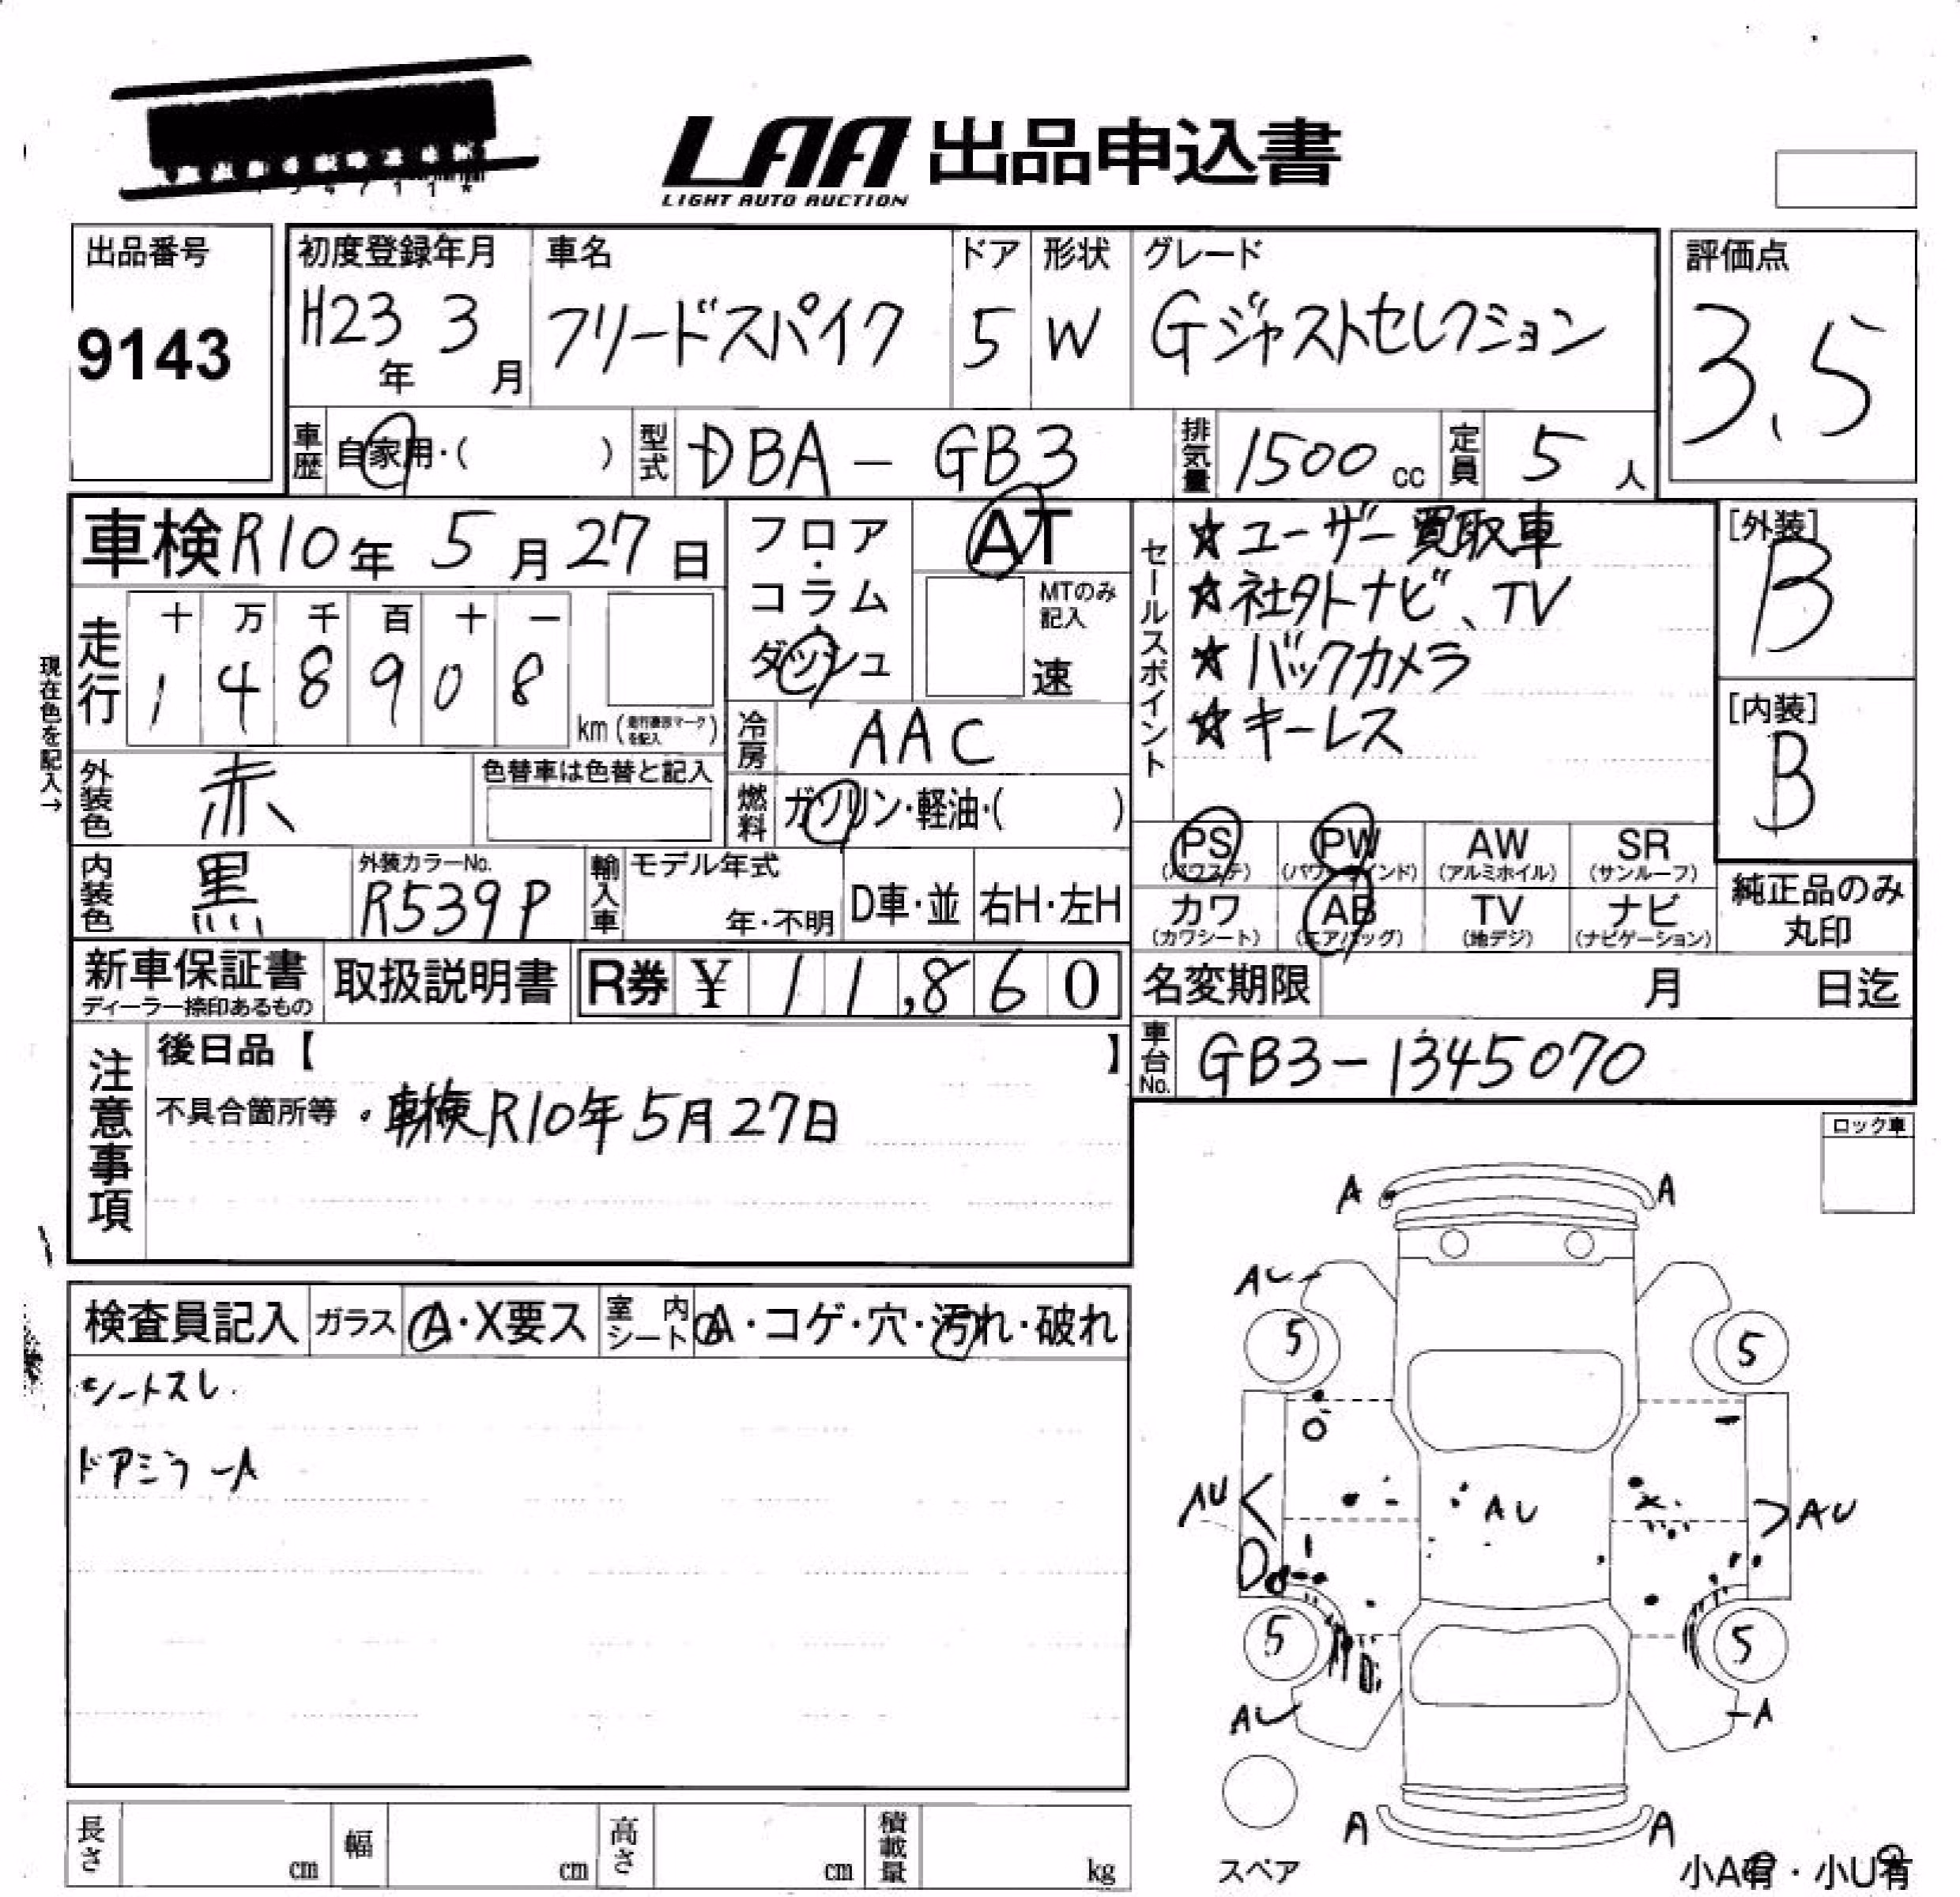 LAA 出品申込書
LIGHT AUTO AUCTION
出品番号
9143
初度登録年月
H23年 3月
車名
フリードスパイク
ドア
5
形状
W
グレード
Gジャストセレクション
評価点
3.5
車歴 自家用・( )
型式 DBA - GB3
排気量 1500 cc
定員 5 人
車検 R10年 5月 27日
フロア・コラム・ダッシュ
AT
MTのみ記入
速
現在色を記入→
走行
十 万 千 百 十 一
1 4 8 9 0 8
km (走行表示マークを記入)
冷房 AAC
外装色 赤
色替車は色替と記入
燃料 ガソリン・軽油・( )
内装色 黒
外装カラーNo.
R539P
輸入車
モデル年式
年・不明
D車・並
右H・左H
セールスポイント
☆ユーザー買取車
☆社外ナビ、TV
☆バックカメラ
☆キーレス
[外装]
B
[内装]
B
PS (パワステ)
PW (パワーウインド)
AW (アルミホイル)
SR (サンルーフ)
カワ (カワシート)
AB (エアバッグ)
TV (地デジ)
ナビ (ナビゲーション)
純正品のみ
丸印
新車保証書
ディーラー捺印あるもの
取扱説明書
R券 ¥ 11,860
名変期限 月 日迄
車台No. GB3-1345070
注意事項
後日品【 】
不具合箇所等 ・車検R10年5月27日
ロック車
検査員記入
ガラス A・X要ス
室内シート A・コゲ・穴・汚れ・破れ
シートスレ
ドアミラーA
A A
AU
5 5
AU AU AU
D
5 5
AU A
A A
スペア
小A有・小U有
長さ cm
幅 cm
高さ cm
積載量 kg